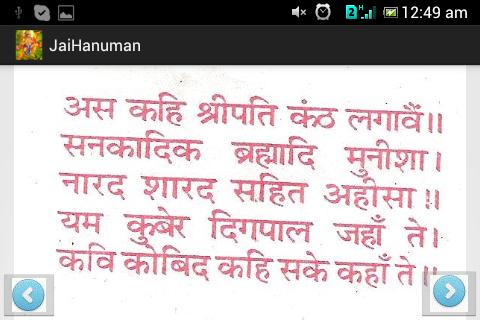 2
12:49 am
JaiHanuman
अस कहि श्रीपति कंठ लगावैं॥
सनकादिक ब्रह्मादि मुनीशा।
नारद शारद सहित अहीसा॥
यम कुबेर दिगपाल जहाँ ते।
कवि कोबिद कहि सके कहाँ ते॥